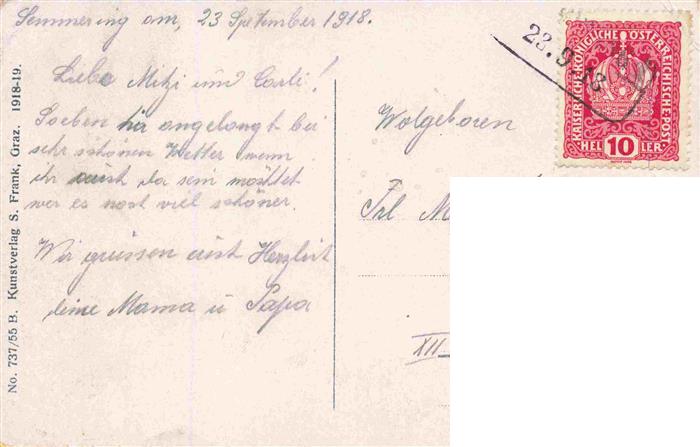 Semmering am, 23 Spetember 1918.
Liebe Mitzi und Carli!
Soeben hir angelangt bei
sehr schönen Wetter wenn
ihr auch da sein möchtet
wer es noch viel schöner.
Wir grüssen euch Herzlich
deine Mama u Papa
No. 737/55 B. Kunstverlag S. Frank, Graz. 1918-19.
Wolgeboren
Frl M
XII
23.9.18
KAISERLICHE KÖNIGLICHE ÖSTERREICHISCHE POST
HEL 10 LER